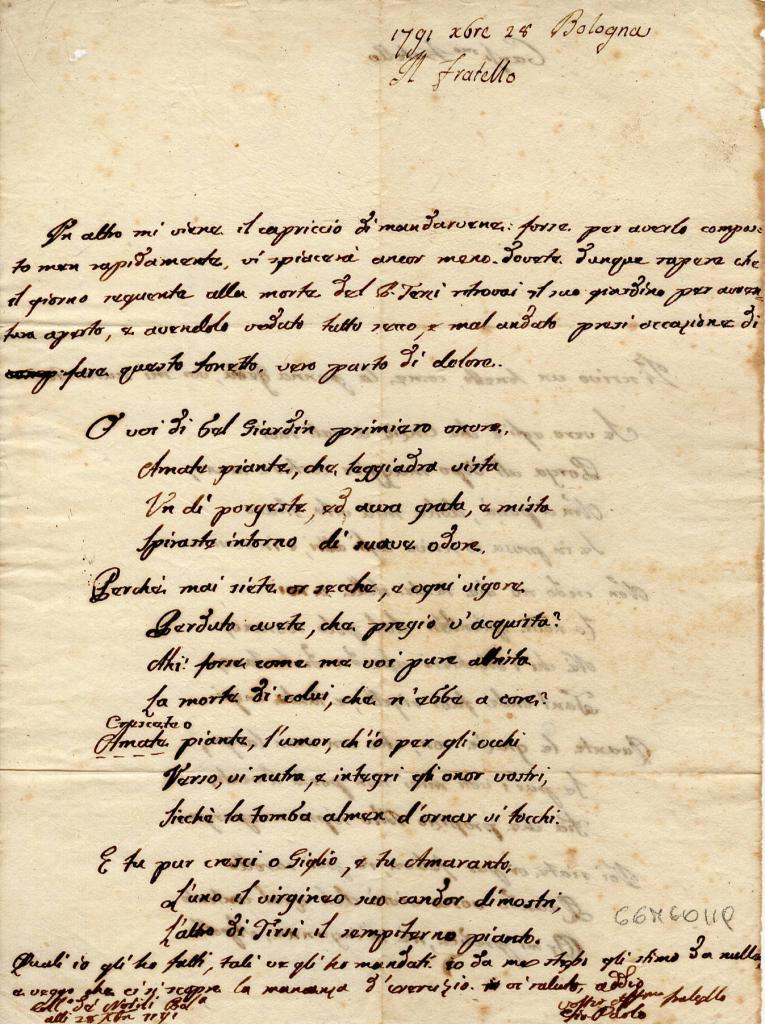 1791 xbre 28 Bologna
Il Fratello
Un altro mi viene il capriccio di mandarvene: forse per averlo compos-
to men rapidamente, vi spiacerà ancor meno. Dovete dunque sapere che
il giorno seguente alla morte del P. Terzi ritrovai il suo giardino per aven-
tura aperto, e avendolo veduto tutto secco, e mal andato presi occazione di
fare questo sonetto, vero parto di dolore.
O voi di bel Giardin primiero onore,
Amate piante, che leggiadra vista
Un di porgeste, ed aura grata, e mista
Spiraste intorno di suave odore,
Perchè mai siete or secche, e ogni vigore
Perduto avete, che pregio v'acquista?
Ahi! forse come me voi pure attrista
La morte di colui, che n'ebbe a core?
Crescete o
Amate piante, l'umor, ch'io per gli occhi
Verso, vi nutra, e integri gli onor vostri,
Sicchè la tomba almen d'ornar vi tocchi.
E tu pur cresci o Giglio, e tu Amaranto,
L'uno il virgineo suo candor dimostri,
L'altro di Tirsi il sempiterno pianto.
Quali io gli ho fatti, tali ve gli ho mandati. io da me stesso gli stimo da nulla,
e veggo che ci si scopre la mancanza d'esercizio. vi saluto, addio
Coll. de' Nobili Bol.a
alli 28 xbre 1791
vostro affmo fratello
Gio Paolo